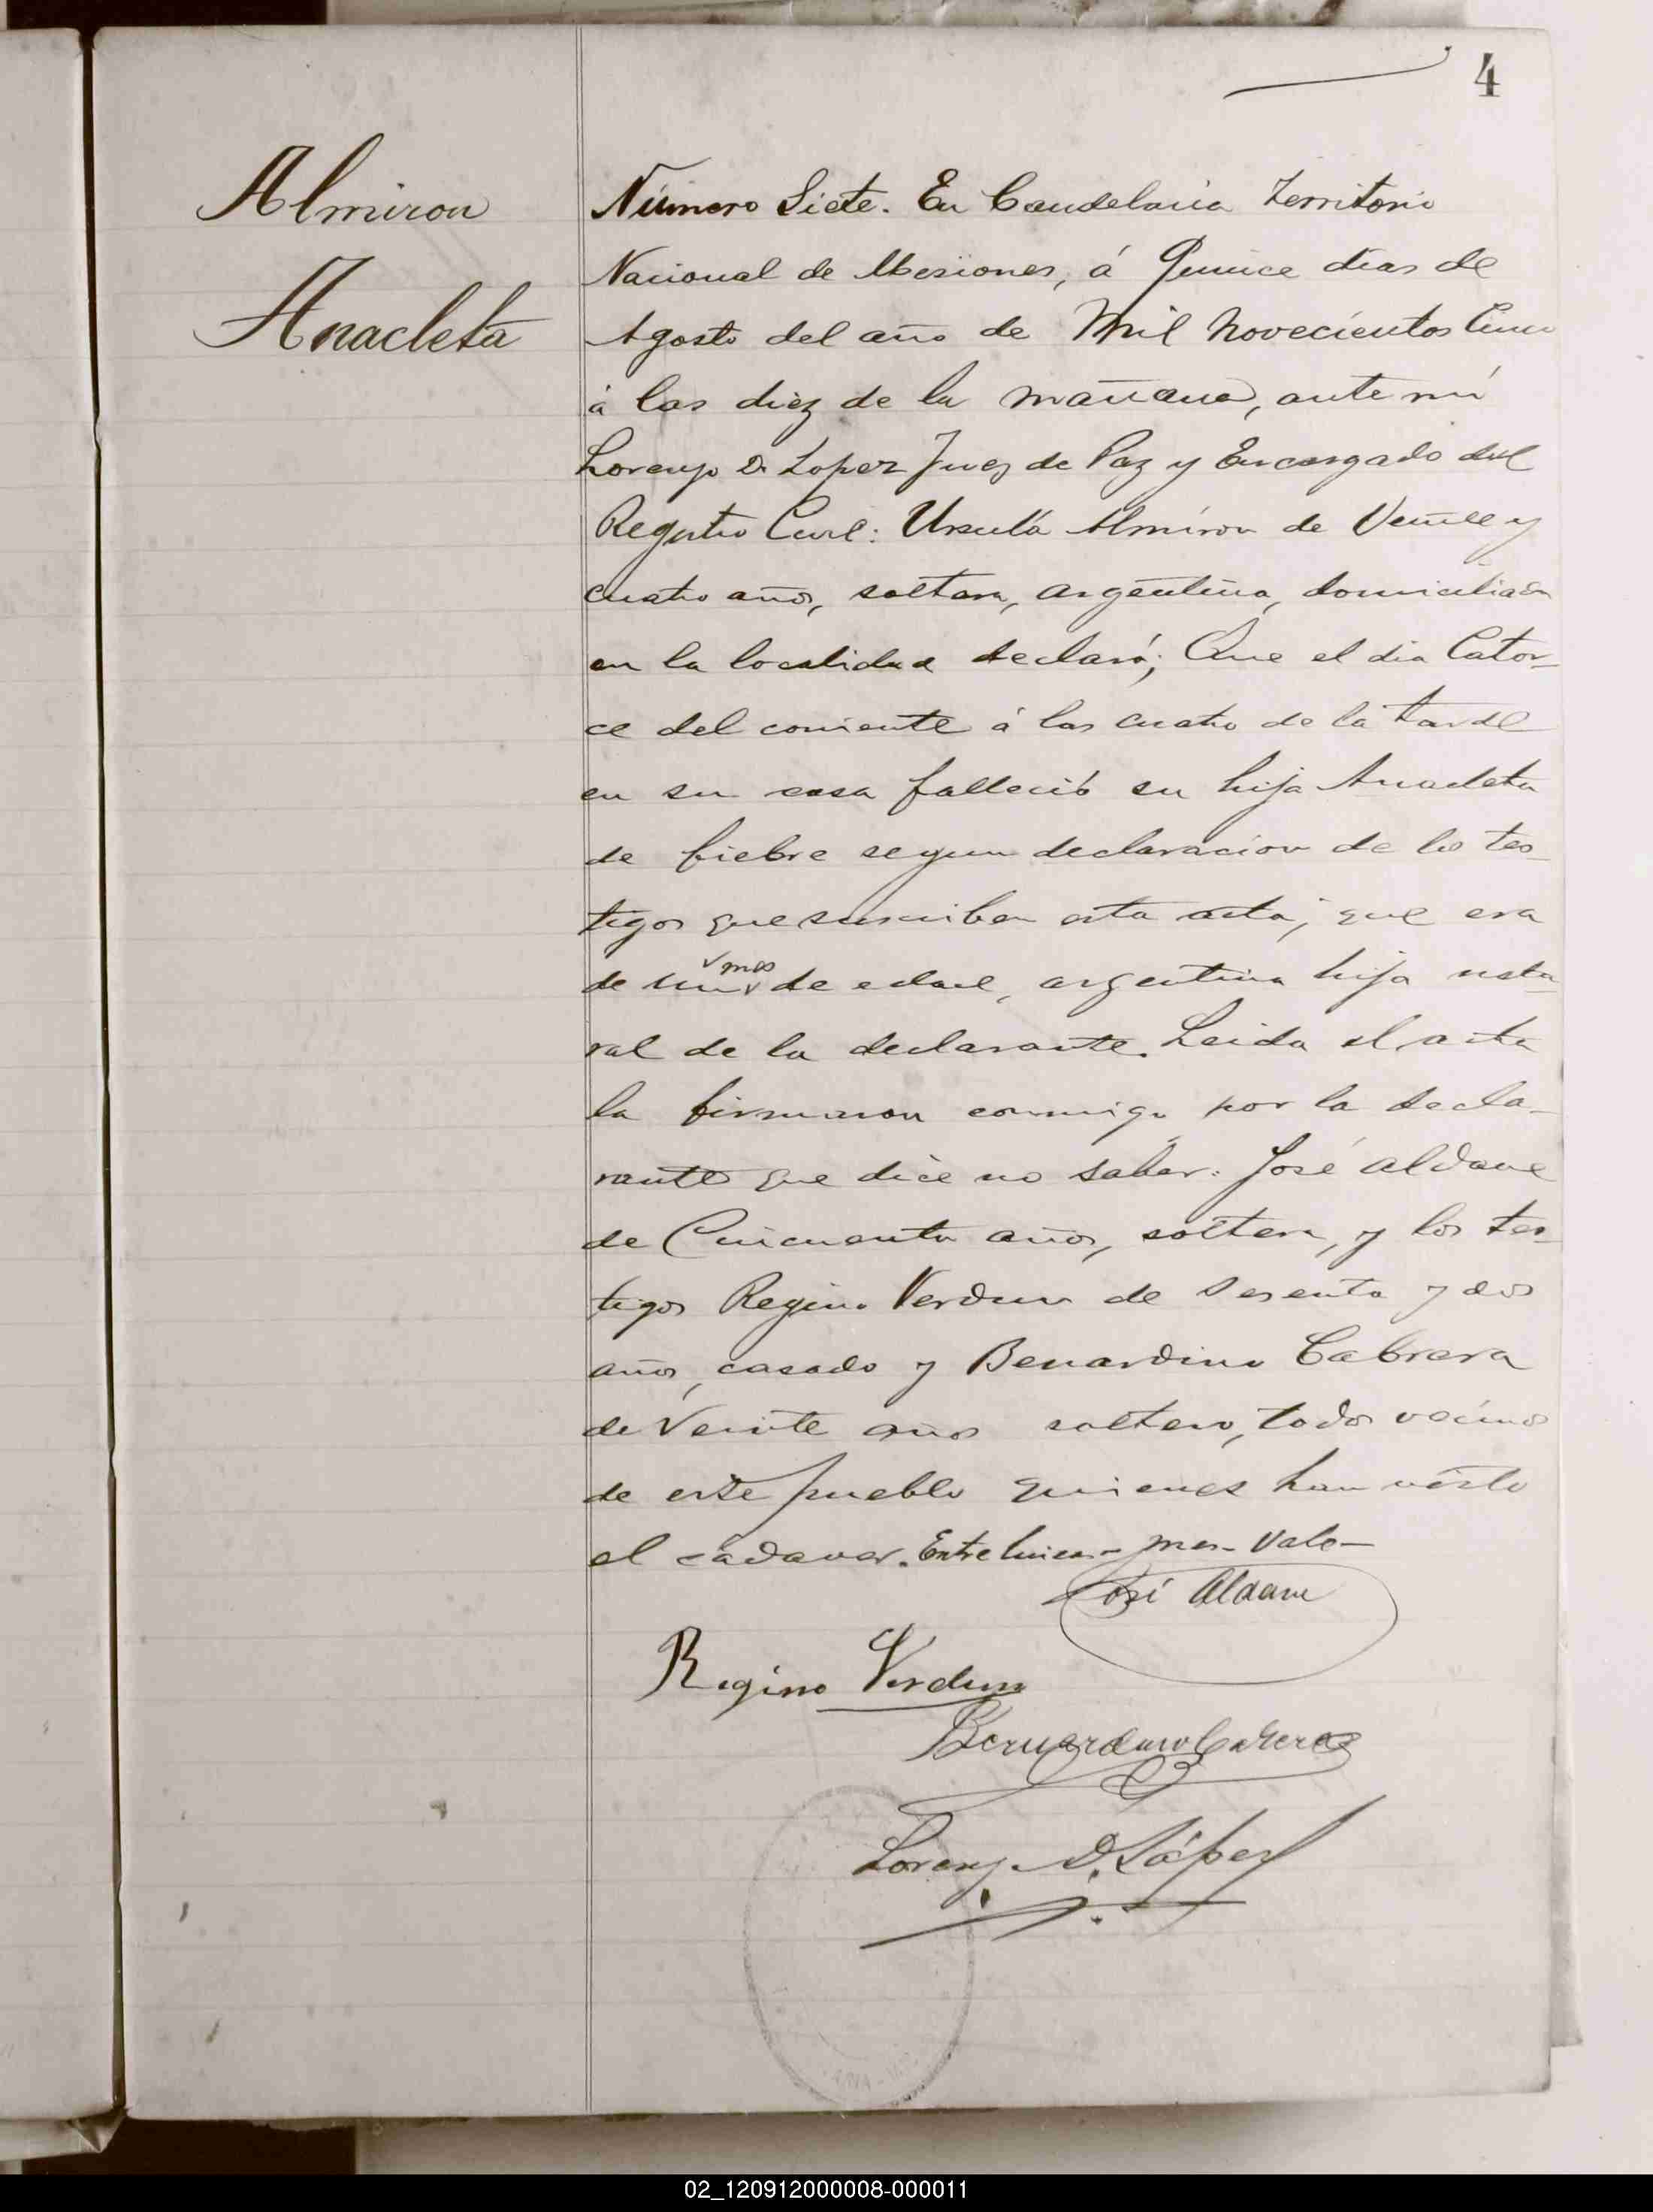 4
Almiron
Anacleta
Número Siete. En Candelaria Territorio
Nacional de Misiones, á Quince dias de
Agosto del año de Mil Novecientos Cinco
á las diez de la mañana, ante mí
Lorenzo D. Lopez Juez de Paz y Encargado del
Registro Civil: Ursula Almiron de Veinte y
cuatro años, soltera, argentina, domiciliada
en la localidad declaró; Que el dia Cator-
ce del corriente á las cuatro de la tarde
en su casa falleció su hija Anacleta
de fiebre segun declaracion de los tes-
tigos que suscriben esta acta; que era
mes
de un de edad, argentina hija natu-
ral de la declarante. Leida el acta
la firmaron conmigo por la decla-
rante que dice no saber: José Aldane
de Cincuenta años, soltero, y los tes-
tigos Regino Verdun de Sesenta y dos
años, casado y Benardino Cabrera
de Veinte años soltero, todos vecinos
de este pueblo quienes han visto
el cadaver. Entre lineas - mes - Vale -
José Aldane
Regino Verdun
Bernardino Cabrera
Lorenzo D. López
02_120912000008-000011